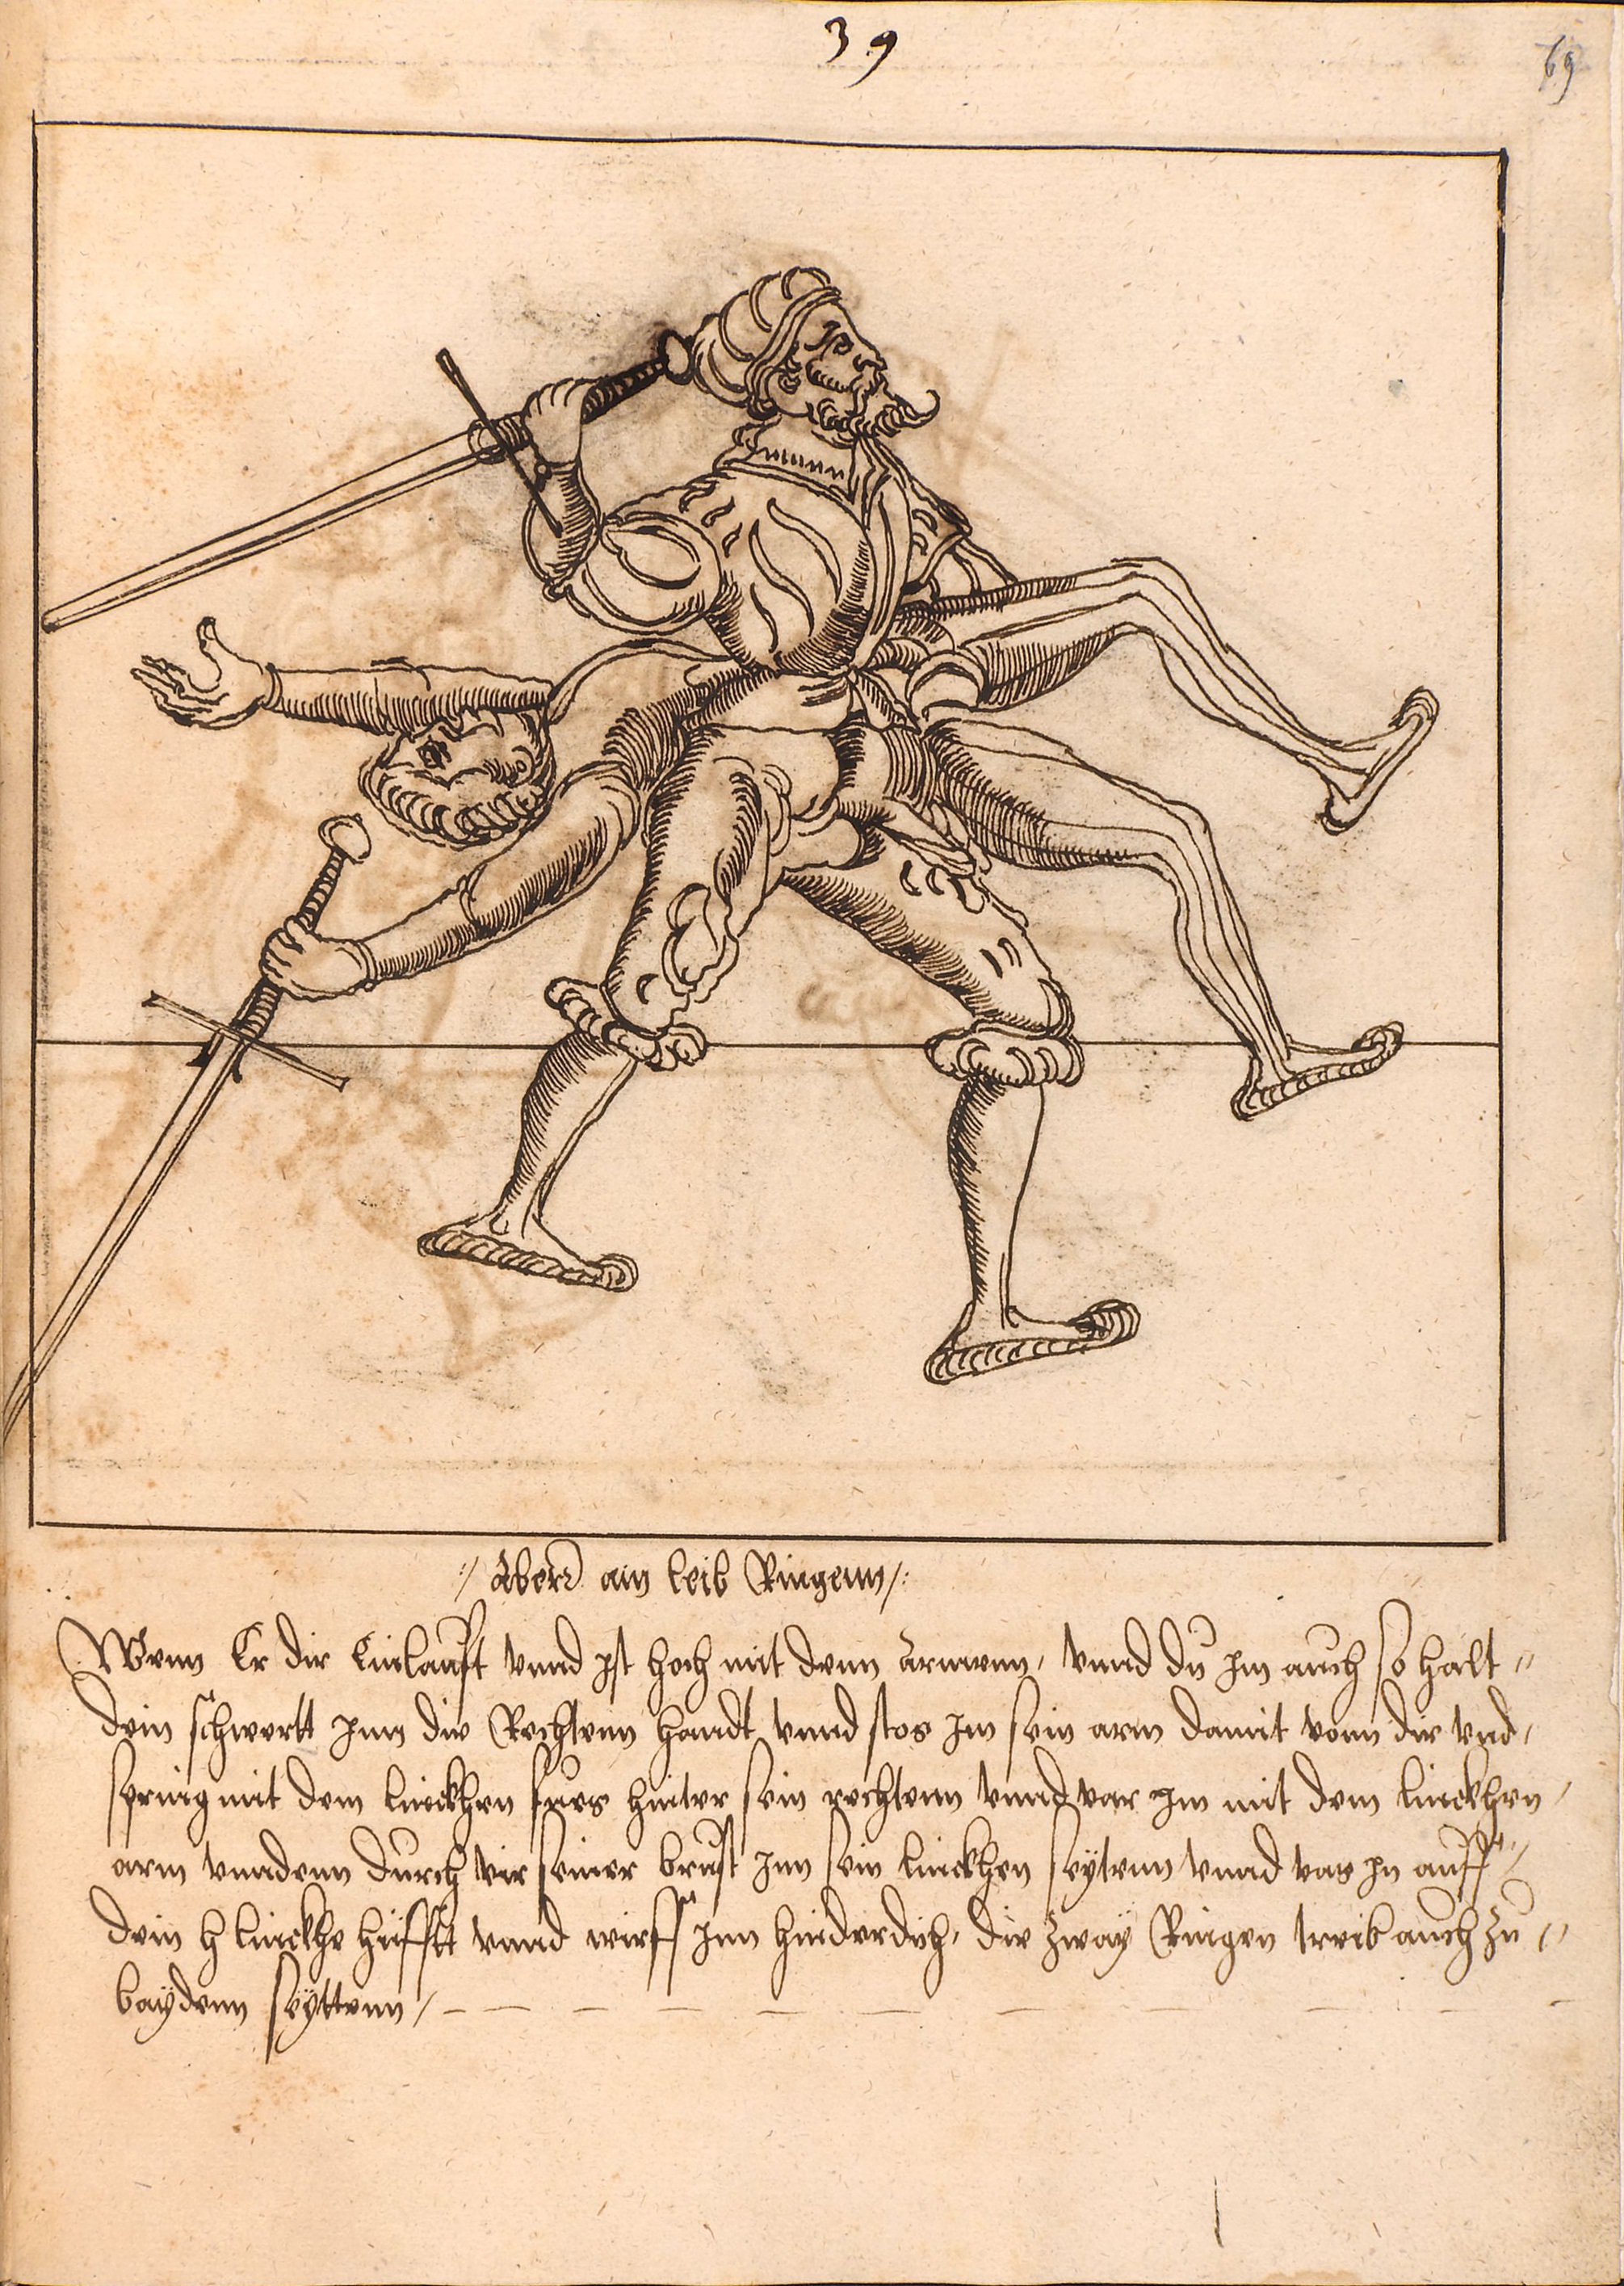 39
69
:/ Aber ain leib Ringenn /:
Wenn Er dir Einlaufft vnnd jst hoch mit denn Armenn, vnnd du jm auch so halt
dein schwertt jnn die Rechtenn handt vnnd stos jm sein arm damit vonn dir vnd
spring mit dem linckhen fues hinter sein rechtenn vnnd var jm mit dem linckhen
arm vnndenn durch vir seiner brust jnn sein linckhen seytenn vnnd vas jn auff
dein h linckhe hüfftt vnnd wirff jnn hinderdich, die zway Ringen treib auch zu
baydenn seyttenn /